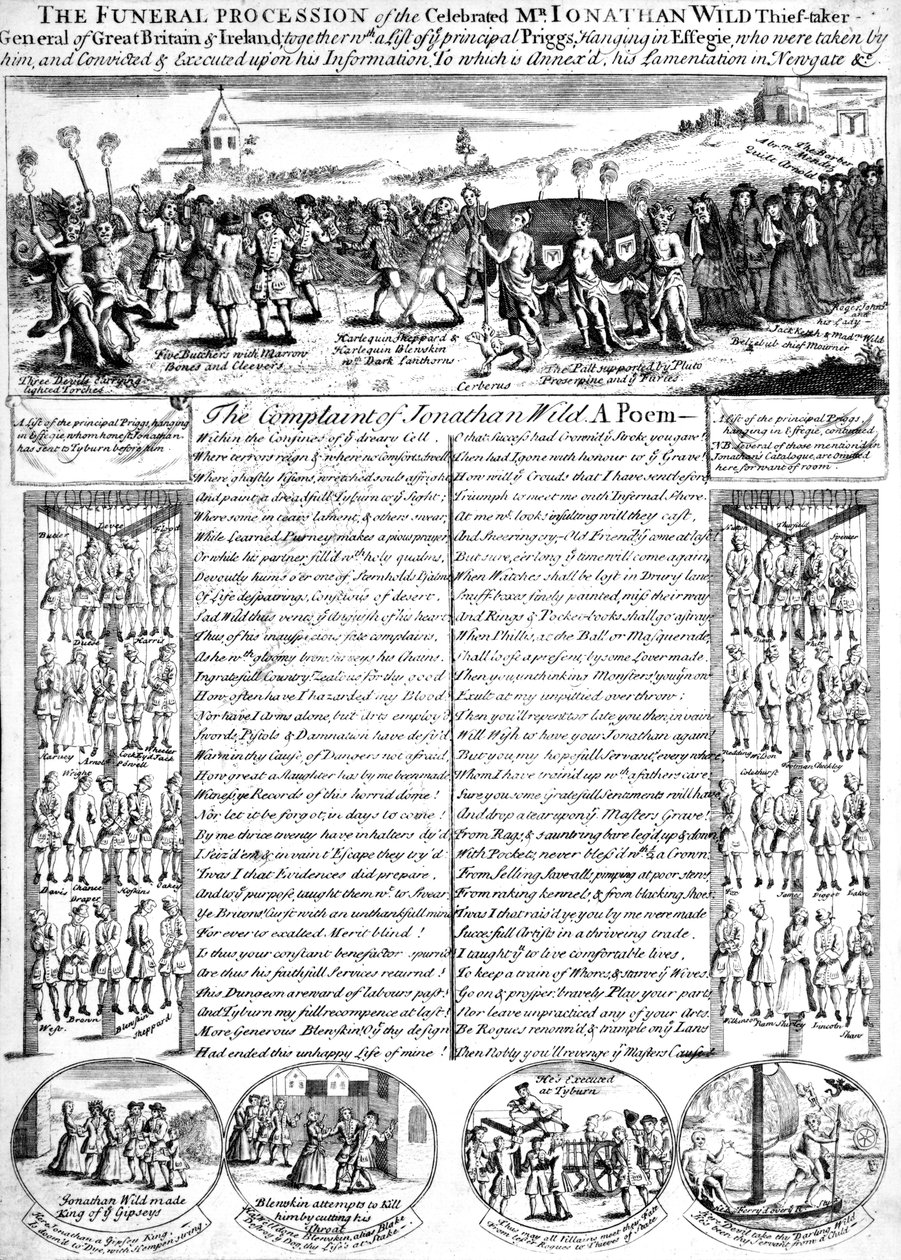 THE FUNERAL PROCESSION of the Celebrated Mr. IONATHAN WILD Thief-taker-
General of Great Britain & Ireland; together wth. a List of ye principal Priggs, Hanging in Effegie, who were taken by
him, and Convicted & Executed upon his Information, To which is Annex'd, his Lamentation in Newgate &c.
The Barber
Abrm. Mendez
Quilt Arnold
Five Butchers with Marrow
Bones and Cleevers
Harlequin Sheppard &
Harlequin Blewskin
wth. Dark Lanthorns
Three Devils Carrying
lighted Torches
Cerberus
The Pall supported by Pluto
Proserpine and ye Furies
Roger Johns.
and
his Lady
Jack Ketch & Madm. Wild
Belzebub chief Mowner
A List of the principal Priggs, hanging
in Effegie, whom honest Jonathan
has sent to Tyburn before him
The Complaint of Jonathan Wild. A Poem—
A List of the principal Priggs
hanging in Effegie, continued
NB. several of those mention'd in
Jonathan's Catalogue, are omitted
here for want of room.
Within the Confines of ye dreary Cell,
Where terrors reign & where no Comforts dwell
Where ghastly Visions, wretched souls affright
And paint a dreadfull Tyburn to ye Sight;
Where some in tears lament, & others swear,
While Learned Purney makes a pious prayer
Or while his partner, fill'd wth. holy qualms,
Devoutly hums o'er one of Sternholds Psalms
Of Life despairing, Conscious of desert,
Sad Wild thus vents ye Anguish of his heart
Thus of his inauspicious fate complains,
As he wth. gloomy brow surveys his Chains.
Ingratefull Country Zealous for thy good
How often have I hazarded my Blood?
Nor have I Arms alone, but Arts employ'd
Swords, Pistols & Damnation have defy'd
Warm in thy Cause, of Dangers not afraid,
How great a slaughter has by me been made
Witness ye Records of this horrid dome!
Nor let it be forgot, in days to come!
By me thrice twenty have in halters dy'd,
I Seiz'd 'em & in vain t' Escape they try'd
'Twas I that Evidences did prepare,
And to ye purpose, taught them wt. to Swear
Ye Britons! Curst with an unthankfull mind
For ever to exalted Merit blind!
Is thus your constant benefactor spurn'd
Are thus his faithfull Services return'd!
This Dungeon a reward of labours past!
And Tyburn my full recompence at last!
More Generous Blewskin! O! ye thy design
Had ended this unhappy Life of mine!
O that Success had Crown'd ye Stroke you gave!
Then had I gone with honour to ye Grave!
How will ye Crouds that I have sent before,
Triumph to meet me on th' Infernal Shore.
At me wt. looks insulting will they cast,
And Sneering cry—Old Friend ye come at last!
But sure, eer long ye time will come again,
When Watches shall be lost in Drury lane
Snuff boxes finely painted, miss their way
And Rings & Pocket-books shall go astray
When Phillis, at the Ball or Masquerade,
Shall loose a present, by some Lover made.
Then you, unthinking Monsters! you ye now
Exult at my unpittied overthrow;
Then you'll repent too late, you then, in vain
Will Wish to have your Jonathan again!
But you, my hopefull Servants, every where,
Whom I have train'd up wth. a fathers care;
Sure you some Gratefull Sentiments will have
And drop a tear upon ye Masters Grave!
From Rags, & sauntring bare leg'd up & down,
With Pockets, never bless'd wth. ½ a Crown;
From Selling Save-alls, pimping at poor stews,
From raking kennels, & from blacking Shoes;
'Twas I that rais'd ye you by me were made
Succesfull Artists in a thriveing trade.
I taught ye to live comfortable lives,
To keep a train of Whores, & starve ye Wives.
Go on & prosper, bravely Play your parts
Nor leave unpracticed any of your Arts.
Be Rogues renown'd & trample on ye Laws
Then Nobly you'll revenge ye Masters Cause.
Butler
Lovee
Flood
Duese
Harris
Harney
Arnold
Cocky
Powell
Wheeler
Jack
Wright
Davis
Chance
Hoskins
Oakey
Draper
West
Brown
Blewskin
Sheppard
Spencer
White
Neddins
Wilson
Freeman
Shockley
Colthurst
Fox
James
Piggot
Lake
Wilkinson
Nan Shirley
Lincoln
Shaw
Jonathan Wild made
King of ye Gipseys
Here Jonathan a Gipsey King,
Is doom'd to Dye, with Hempen string
Blewskin attempts to Kill
him by cutting his
Throat
Blewskin, alias Blake
thy Life's at Stake
He's Executed
at Tyburn
Thus may all Villains meet their Fate
From lesser Rogues to Thieves of State
He's Ferry'd over ye Styx
Here Devil take thy Darling Wild
He's been thy Servant from a Child